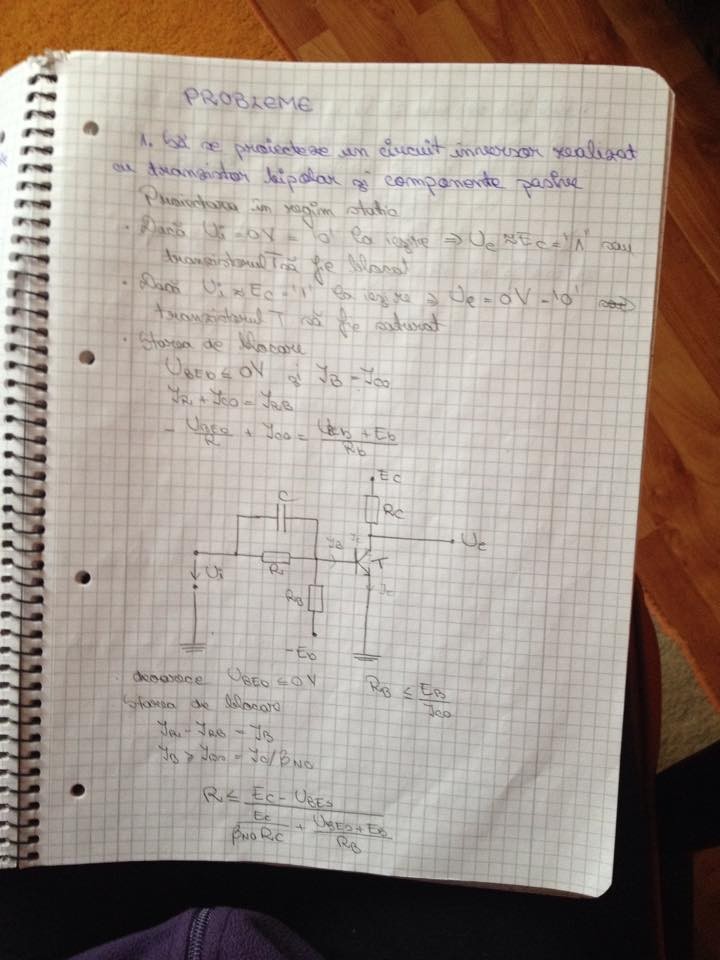 PROBLEME
1. Să se proiecteze un circuit inversor realizat
cu tranzistor bipolar și componente pasive
Proiectarea în regim static
· Dacă Ui = 0V = '0' la ieșire ⇒ Ue ≈ Ec = '1' sau
tranzistorul T să fie blocat
· Dacă Ui ≈ Ec = '1' la ieșire ⇒ Ue = 0V = '0'
tranzistorul T să fie saturat
· Starea de blocare
UBEO ≤ 0V și JB = JCO
JR1 + JCO = JRB
- UBEO/R + JCO = (UEb + Eb)/Rb
EC
RC
C
Ue
JB
Jc
T
R
Ui
RB
-Eb
· deoarece UBEO ≤ 0V RB ≤ EB/JCO
Starea de blocare
JR1 - JRB = JB
R ≤ (Ec - UBES)/(Ec/(βNO RC) + (UBEO + Eb)/RB)